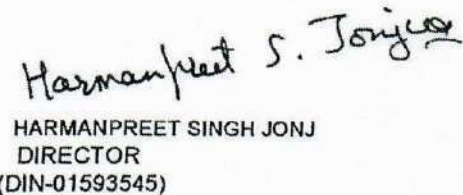 Harmanpreet S. Jonjua
HARMANPREET SINGH JONJ
DIRECTOR
(DIN-01593545)